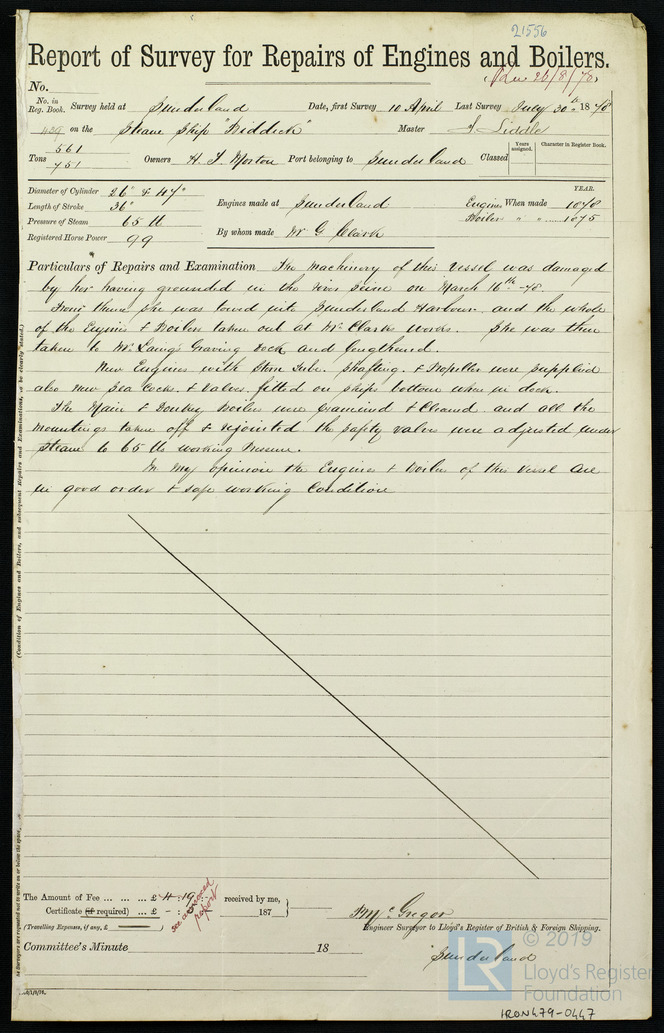 21556
Report of Survey for Repairs of Engines and Boilers.
Rec 26/8/78
No.
No. in Reg. Book. Survey held at Sunderland Date, first Survey 10 April Last Survey July 30th 1878
429 on the Steam Ship "Biddick" Master J Liddle
Tons 561 751 Owners H. T. Morton Port belonging to Sunderland Classed Years assigned. Character in Register Book.
Diameter of Cylinder 26" & 47"
Length of Stroke 36"
Pressure of Steam 65 lb
Registered Horse Power 99
Engines made at Sunderland
By whom made W G Clark
YEAR.
Engines When made 1878
Boiler " " 1875
Particulars of Repairs and Examination The machinery of this Vessel was damaged
by her having grounded in the river Seine on March 16th -78.
From thence she was towed into Sunderland Harbour and the whole
of the Engines & Boilers taken out at Mr Clarks works. She was then
taken to Mr Laings Graving dock and lengthened.
New Engines with Stern Tube. Shafting. & Propeller were supplied
also new Sea Cocks. & Valves. fitted on ships bottom when in dock.
The Main & Donkey Boilers were examined & Cleaned and all the
mountings taken off & rejointed the safety valves were adjusted under
steam to 65 lbs working Pressure.
In my opinion the Engines & Boiler of this Vessel are
in good order & safe working Condition
(Condition of Engines and Boilers, and subsequent Repairs and Examinations, to be clearly stated.)
The Surveyors are requested not to write on or below the space
The Amount of Fee ... ... ... £ 4 : 19 : received by me,
Certificate (if required) ... £ - : 187
see amended report
(Travelling Expenses, if any, £ )
P McGregor
Engineer Surveyor to Lloyd's Register of British & Foreign Shipping.
Committee's Minute 18
Sunderland
© 2019
LR
Lloyd's Register
Foundation
IRON479-0447